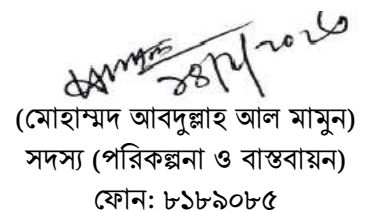 ১৪/৮/২০২৩
(মোহাম্মদ আবদুল্লাহ আল মামুন)
সদস্য (পরিকল্পনা ও বাস্তবায়ন)
ফোন: ৮১৮৯০৮৫